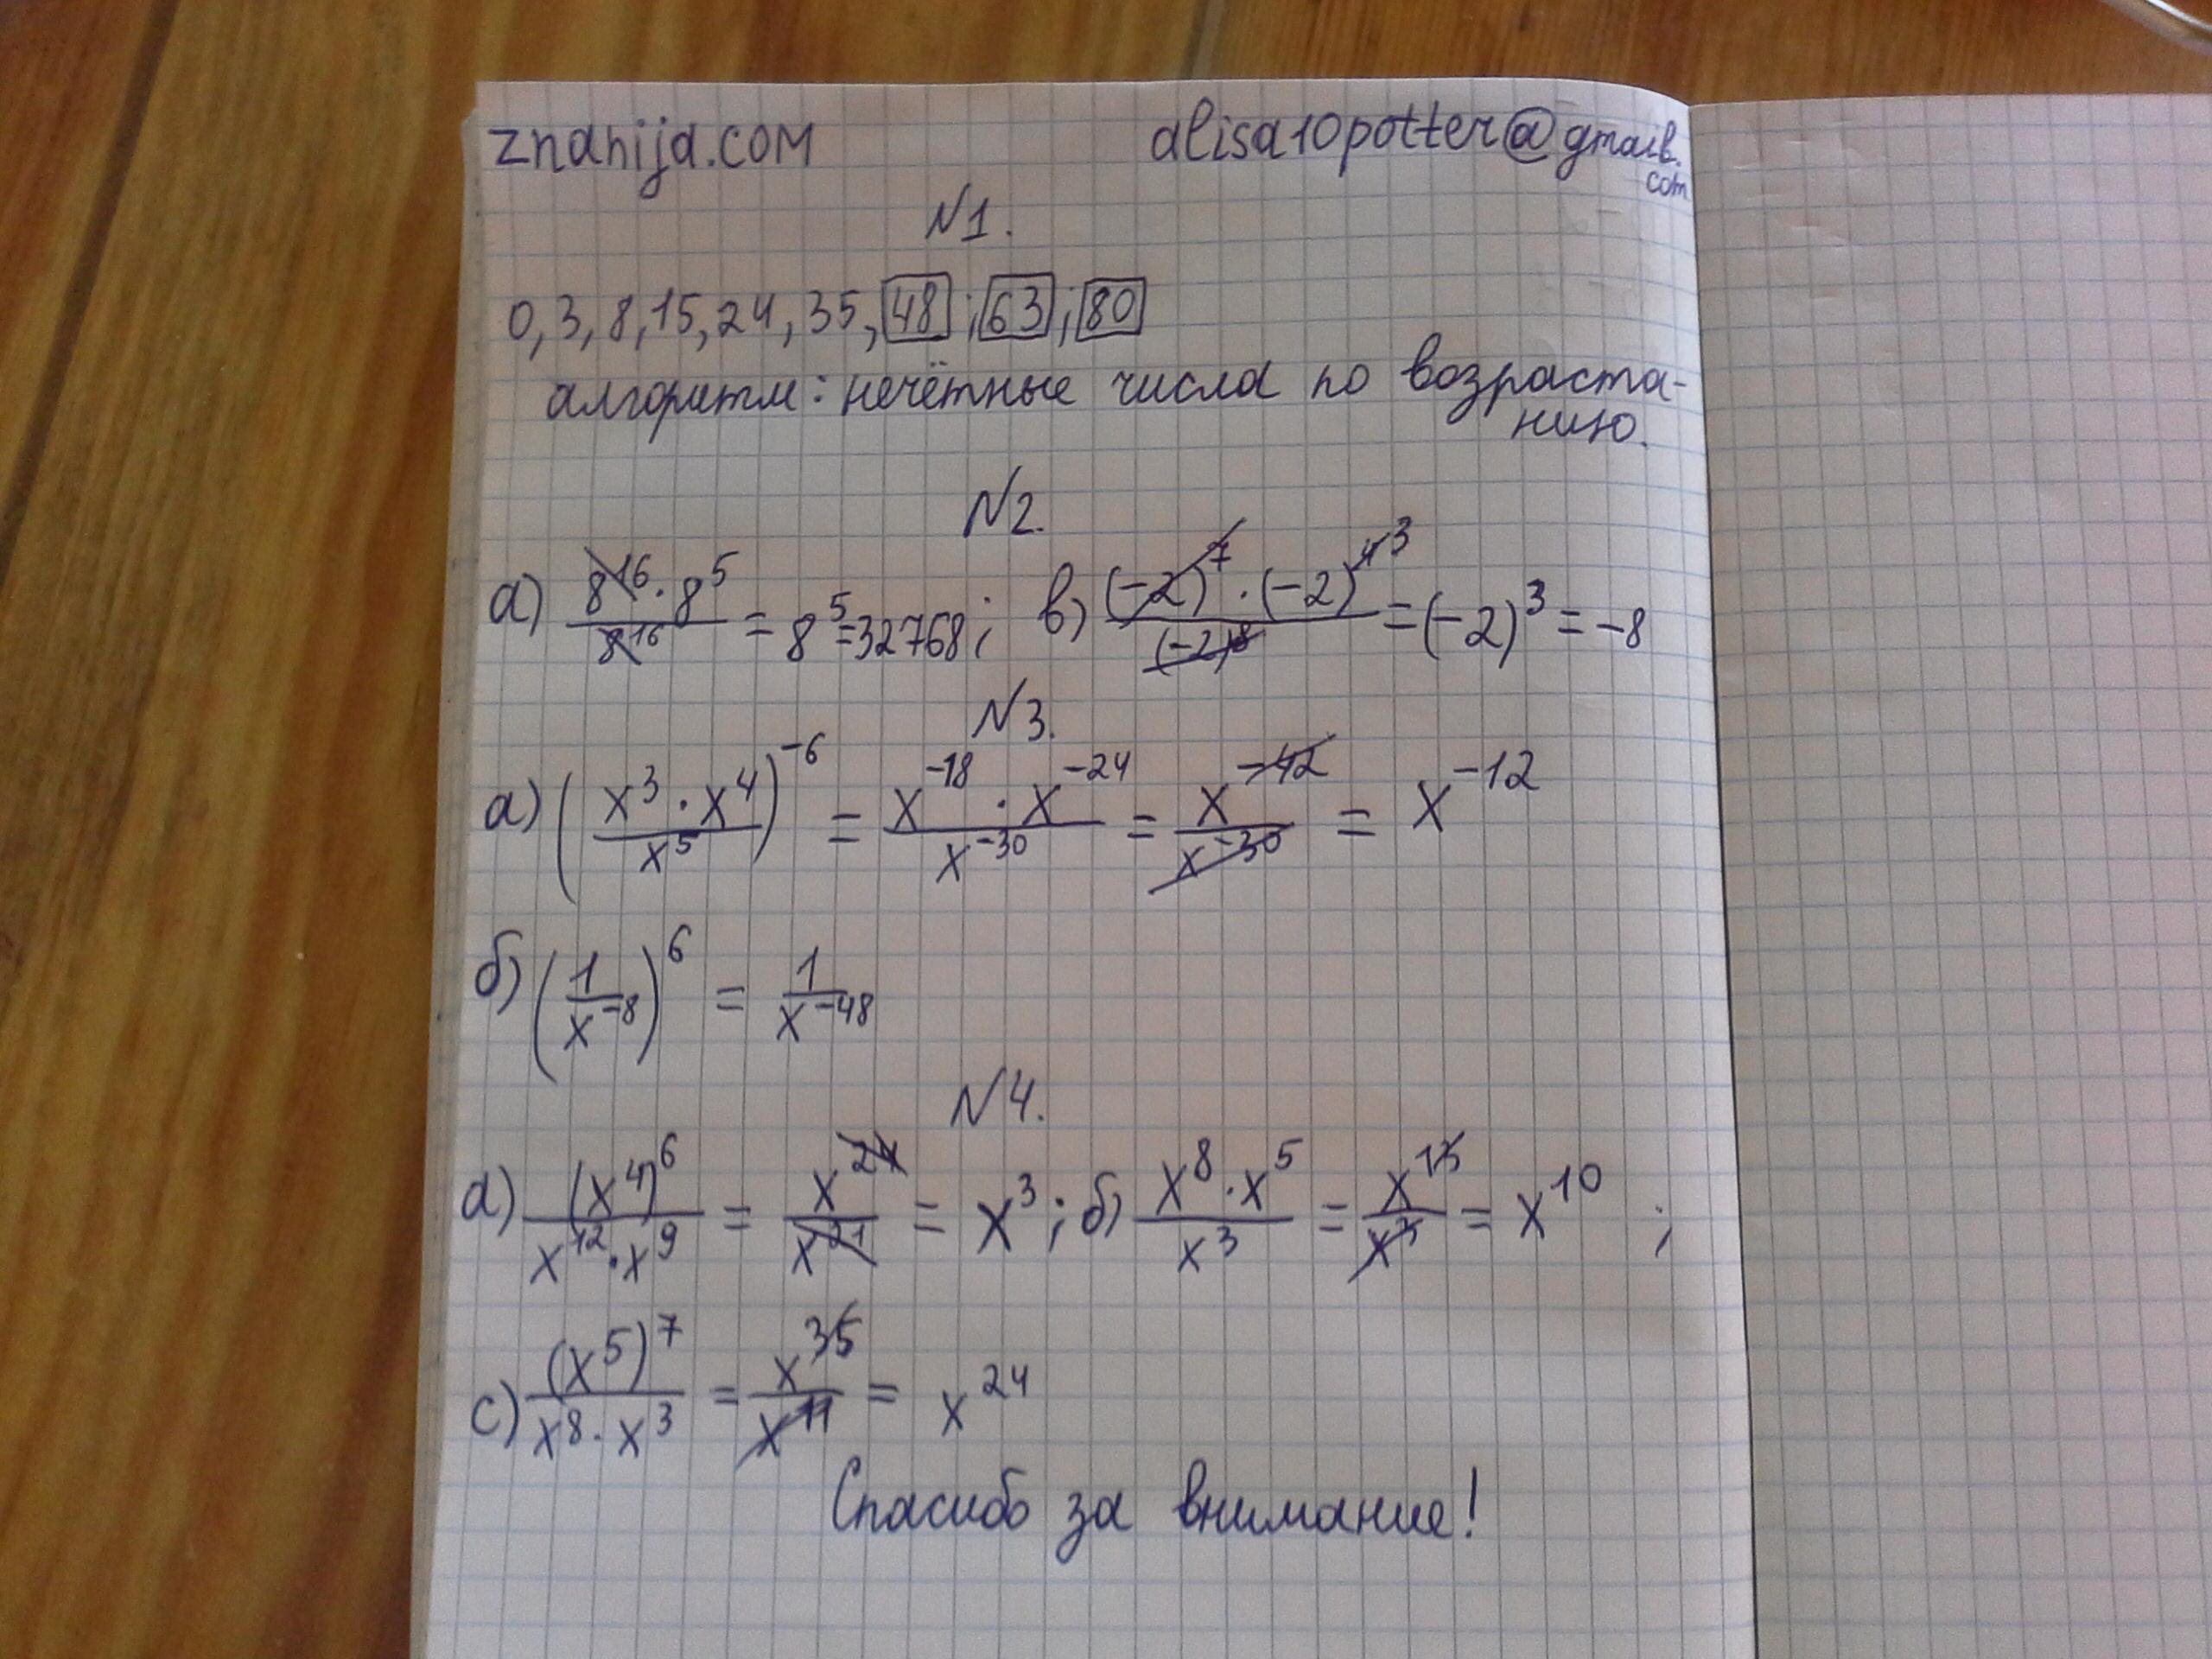 znanija.com alisa10potter@gmail.com
N1.
0, 3, 8, 15, 24, 35, 48; 63; 80
алгоритм: нечётные числа по возраста-
нию.
N2.
а) (8^16 · 8^5)/8^16 = 8^5 = 32768; в) ((-2)^7 · (-2)^4 ^3)/(-2)^8 = (-2)^3 = -8
N3.
а) ((x^3 · x^4)/x^5)^-6 = (x^-18 · x^-24)/x^-30 = x^-42/x^-30 = x^-12
б) (1/x^-8)^6 = 1/x^-48
N4.
а) (x^4)^6/(x^12 · x^9) = x^24/x^21 = x^3; б) (x^8 · x^5)/x^3 = x^13/x^3 = x^10;
с) (x^5)^7/(x^8 · x^3) = x^35/x^11 = x^24
Спасибо за внимание!